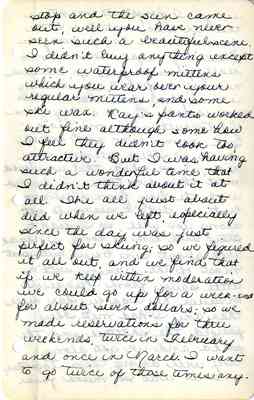 stop and the sun came
out, well you have never
seen such a beautiful scene.
I didn't buy anything except
some waterproof mittens
which you wear over your
regular mittens, and some
ski wax. Kay's pants worked
out fine although some how
I feel they didn't look too
attractive. But I was having
such a wonderful time that
I didn't think about it at
all. We all just about
died when we left, especially
since the day was just
perfect for skiing, so we figured
it all out, and we find that
if we keep within moderation
we could go up for a week-end
for about seven dollars; so we
made reservations for three
weekends, twice in February
and once in March. I want
to go twice of those times any-